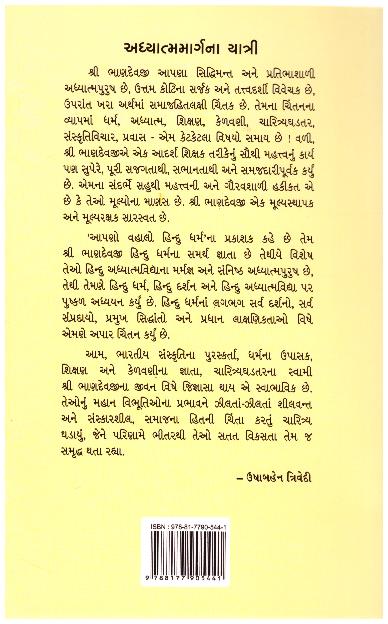 અધ્યાત્મમાર્ગના યાત્રી
શ્રી ભાણદેવજી આપણા સિદ્ધિમન્ત અને પ્રતિભાશાળી
અધ્યાત્મપુરુષ છે, ઉત્તમ કોટિના સર્જક અને તત્ત્વદર્શી વિવેચક છે,
ઉપરાંત ખરા અર્થમાં સમાજહિતલક્ષી ચિંતક છે. તેમના ચિંતનના
વ્યાપમાં ધર્મ, અધ્યાત્મ, શિક્ષણ, કેળવણી, ચારિત્ર્યઘડતર,
સંસ્કૃતિવિચાર, પ્રવાસ – એમ કેટકેટલા વિષયો સમાય છે ! વળી,
શ્રી ભાણદેવજીએ એક આદર્શ શિક્ષક તરીકેનું સૌથી મહત્ત્વનું કાર્ય
પણ સુપેરે, પૂરી સજગતાથી, સભાનતાથી અને સમજદારીપૂર્વક કર્યું
છે. એમના સંદર્ભે સહુથી મહત્ત્વની અને ગૌરવશાળી હકીકત એ
છે કે તેઓ મૂલ્યોના માણસ છે. શ્રી ભાણદેવજી એક મૂલ્યસ્થાપક
અને મૂલ્યરક્ષક સારસ્વત છે.
'આપણો વહાલો હિન્દુ ધર્મ'ના પ્રકાશક કહે છે તેમ
શ્રી ભાણદેવજી હિન્દુ ધર્મના સમર્થ જ્ઞાતા છે તેથીયે વિશેષ
તેઓ હિન્દુ અધ્યાત્મવિદ્યાના મર્મજ્ઞ અને સંનિષ્ઠ અધ્યાત્મપુરુષ છે,
તેથી તેમણે હિન્દુ ધર્મ, હિન્દુ દર્શન અને હિન્દુ અધ્યાત્મવિદ્યા પર
પુષ્કળ અધ્યયન કર્યું છે. હિન્દુ ધર્મનાં લગભગ સર્વ દર્શનો, સર્વ
સંપ્રદાયો, પ્રમુખ સિદ્ધાંતો અને પ્રધાન લાક્ષણિકતાઓ વિષે
એમણે અપાર ચિંતન કર્યું છે.
આમ, ભારતીય સંસ્કૃતિના પુરસ્કર્તા, ધર્મના ઉપાસક,
શિક્ષણ અને કેળવણીના જ્ઞાતા, ચારિત્ર્યઘડતરના સ્વામી
શ્રી ભાણદેવજીના જીવન વિષે જિજ્ઞાસા થાય એ સ્વાભાવિક છે.
તેઓનું મહાન વિભૂતિઓના પ્રભાવને ઝીલતાં-ઝીલતાં શીલવન્ત
અને સંસ્કારશીલ, સમાજના હિતની ચિંતા કરતું ચારિત્ર્ય
ઘડાયું, જેને પરિણામે ભીતરથી તેઓ સતત વિકસતા તેમ જ
સમૃદ્ધ થતા રહ્યા.
– ઉષાબહેન ત્રિવેદી
ISBN : 978-81-7790-544-1
9 788177 905441